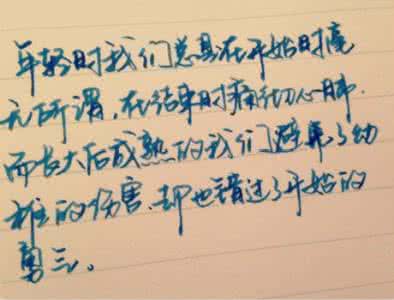 年轻时我们总是在开始时毫
无所谓,在结束时痛彻心肺.
而长大后成熟的我们避免了幼
稚的伤害.却也错过了开始的
勇气。